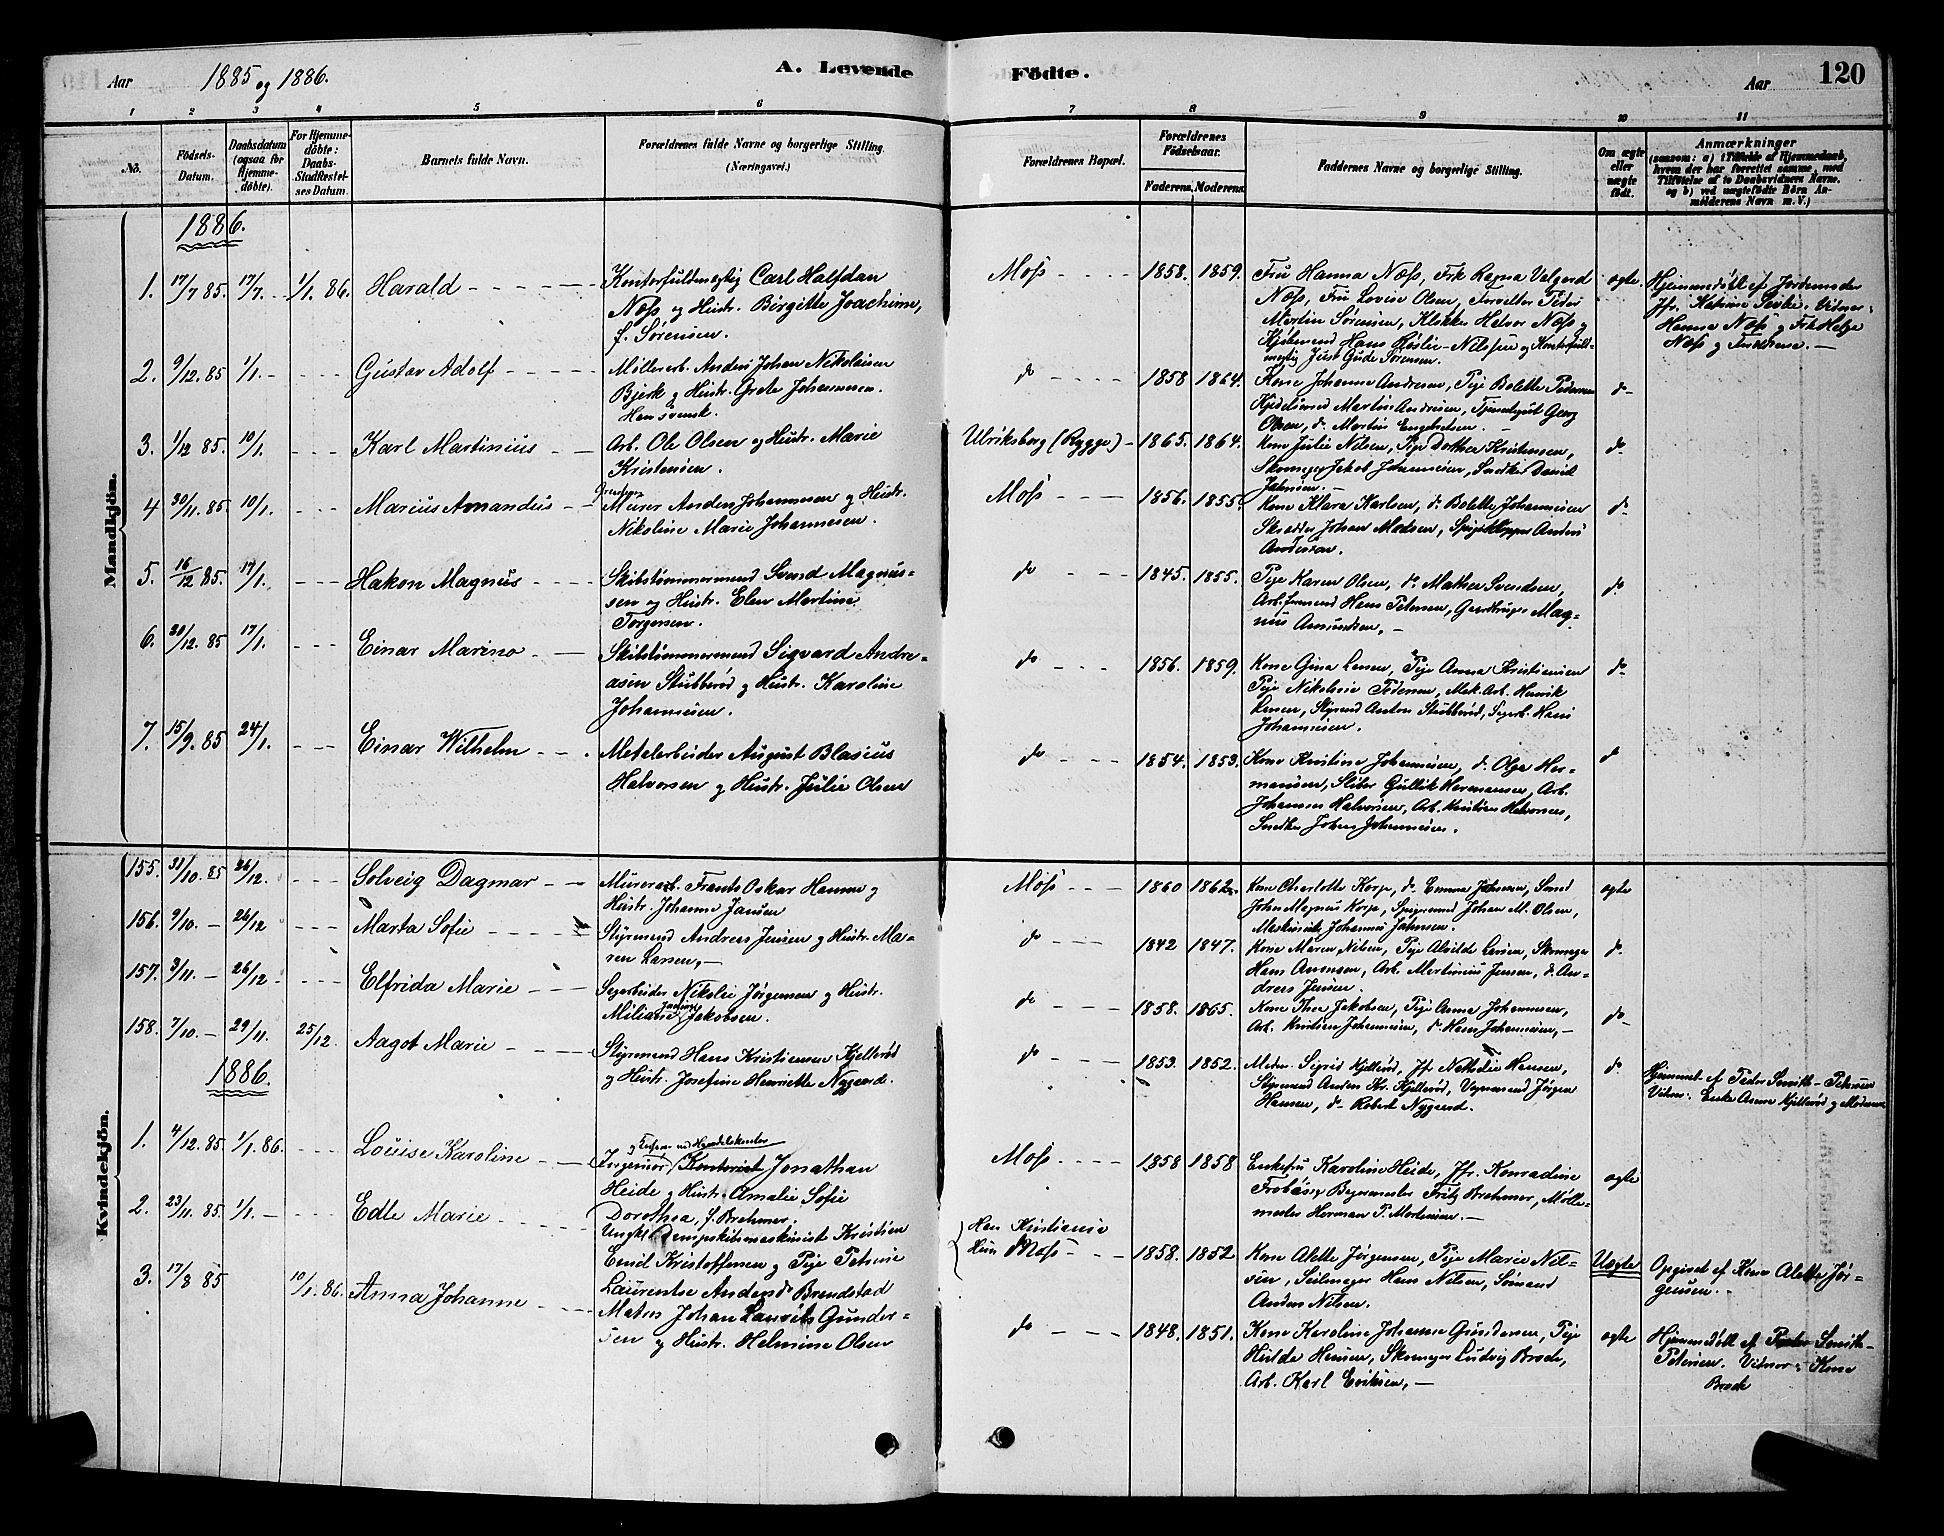 Aar 1885 og 1886.
A. Levende
Födte.
Aar
120
1 2 3 4 5 6 7 8 9 10 11
No.
Födsels-
Datum.
Daabsdatum
(ogsaa for
Hjemme-
döbte).
For Hjemme-
döbte:
Daabs-
Stadfæstel-
ses Datum.
Barnets fulde Navn.
Forældrenes fulde Navne og borgerlige Stilling.
(Næringsvei.)
Forældrenes Bopæl.
Forældrenes
Födselsaar.
Faderens.
Moderens.
Faddernes Navne og borgerlige Stilling.
Om ægte
eller
uægte
födt.
Anmærkninger
(saasom: a) i Tilfælde af Hjemmedaab,
hvem der har forrettet samme, med
Tilföielse af to Daabsvidners Navne,
og b) ved uægtefödte Börn An-
melderens Navn m. V.)
Mandkjön.
1886.
1. 17/7 85. 17/7. 1/1. 86. Harald
Kontorfuldmægtig Carl Halfdan
Næss og Hustr. Birgitte Joachime,
f. Sørensen.
Moss 1858. 1859.
Fru Hanna Næss, Frk Ragna Valgerd
Næss, Fru Lovise Olsen, Forvalter Peder
Martin Sørensen, Klokker Halvor Næss og
Kjøbmand Hans Høslie-Nilssen og Kontorfuld-
mægtig Just Gude Sørensen.
ægte
Hjemmedöbt af Jordemoder
Jfr. Katrine Vidner:
Hanna Næss og Frk Helga
Næss og Faderene.
2. 9/12. 85 1/1. Gustav Adolf
Möllerarb. Anders Johan Nikolaisen
Bjerk og Hustr. Grete Johannesen.
Han svensk.
do 1858 1864.
Kone Johanne Andresen, Pige Bolette Pedersen
Martin Andresen, Georg
Olsen, do Martin Engebretsen.
do
3. 1/12 85. 10/1. Karl Martinius
Arb. Ole Olsen og Hustr. Marie
Kristensen.
Ulriksborg (Rygge) 1865. 1864.
Kone Julie Nilsen, Pige Dorthea Kristensen,
Skomager Jakob Johannesen, Snedker David
Johnsen.
do
4 30/11. 85. 10/1. Marius Amandus
Murer Anders Johannesen og Hustr.
Nikoline Marie Johannesen.
Moss 1856. 1855.
Kone Klara Karlsen, do Bolette Johannesen
Skrædder Johan Madsen, Anders
Andersen.
do
5. 16/12 85. 17/1. Hakon Magnus
Skibstömmermand Svend Magnus-
sen og Hustr. Elen Martine
Torgersen.
do 1845. 1855.
Pige Karen Olsen, do Mathea Svendsen,
Arb.formand Hans Petersen, Mag-
nus Amundsen.
do
6. 20/12. 85 17/1. Einar Marino
Skibstömmermand Sigvard Andre-
asen Stubberöd og Hustr. Karoline
Johannesen.
do 1856. 1859.
Kone Gina Larsen, Pige Anna Kristiansen
Pige Nikoline Pedersen, Mek. Arb. Henrik
Larsen, Styrmd Anton Stubberöd, Sagarb. Hans
Johannesen.
do
7. 15/9. 85 24/1. Einar Wilhelm
Metalarbeider August Blasius
Halvorsen og Hustr. Julie Olsen
do 1854. 1853.
Kone Kristine Johannesen, do Olga Her-
mansen, Sliber Gullik Hermansen, Arb.
Johannes Halvorsen, Arb. Kristian Halvorsen,
Snedker Johan Johannesen.
do
Kvindekjön.
155. 31/10. 85 26/12. Solveig Dagmar
Murerarb. Frants Oskar Hansen og
Hustr. Johanne Jansen
Moss 1860 1862.
Kone Charlotte Korp, do Emma Johnsen, Smed
John Magnus Korp, Johan M. Olsen,
Maskinist Johannes Johnsen.
ægte
156. 9/10. 26/12 Marta Sofie
Styrmand Andreas Jensen og Hustr. Ma-
ren Larsen,
do 1842 1847.
Kone Maren Nilsen, Pige Alvilde Larsen, Skomager
Hans Aronsen, Arb. Martinius Jensen, do An-
dreas Jensen.
do
157. 3/11. 26/12. Elfrida Marie
Sagarbeider Nikolai Jörgensen og Hustr.
Miliane Jakobsen.
do 1858. 1865.
Kone Thea Jakobsen, Pige Anna Johannesen,
Arb. Kristian Johannesen, do Hans Johannesen,
do
158. 7/10. 29/11. 25/12. Aagot Marie
Styrmand Hans Kristiansen Kjelleröd
og Hustr. Josefine Henriette Nygaard.
do 1853. 1852.
Madm. Sigrid Kjelleröd, Jfr. Nathalie Hansen,
Styrmand Anders Kr. Kjelleröd, Vognmand Jörgen
Hansen, do Robert Nygaard.
do
Hjemmed. af Peder Smith-Petersen
Vidner: Enke Anne Kjelleröd og Moderen
1886.
1. 4/12. 85. 1/1. 86. Louise Karoline
Ingeniør Kontorist Jonathan
Heide og Hustr. Amalie Sofie
Dorothea, f. Brehmer.
Moss 1858 1858
Enkefru Karoline Heide, Jfr. Konradine
Frobösig Bygmester Fritz Brehmer, Mölle-
mester Herman P. Mortensen.
ægte
2. 23/11. 85. 1/1. Edle Marie
Ungkl Dampskibsmaskinist Kristian
Emil Kristoffersen og Pige Petrine
Laurentse Andersdr Brendstad
Han Kristiania
Hun Moss 1858. 1852
Kone Alette Jörgensen, Pige Marie Nil-
sen, Seilmager Hans Nilsen, Sömand
Anders Nilsen.
Uægte
Opgivet af Kone Alette Jör-
gensen.
3. 17/8 85 10/1. 86. Anna Johanne
Matros Johan Laurits Gunder-
sen og Hustr. Helmine Olsen
do 1848. 1851.
Kone Karoline Johanne Gundersen, Pige
Hulda Hansen, Skomager Ludvig Brode,
Arb. Karl Eriksen,
ægte
Hjemmedöbt af Peder Smith-
Petersen. Vidner: Kone
Brode